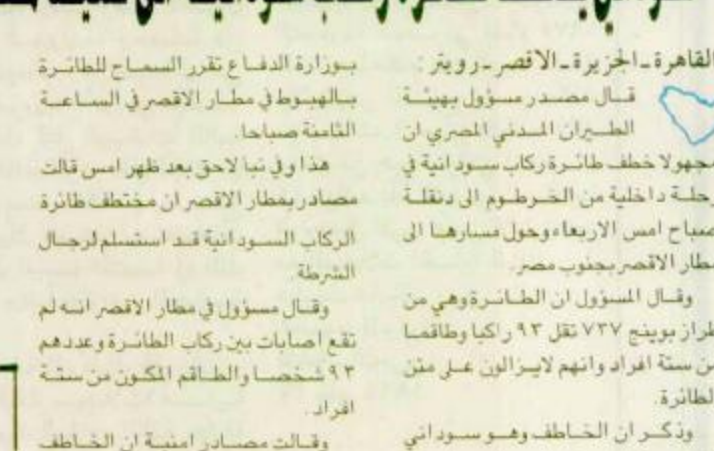 القاهرة ـ الجزيرة ـ الاقصر ـ رويتر :
قال مصدر مسؤول بهيئة
الطيران المدني المصري ان
مجهولا خطف طائرة ركاب سودانية في
رحلة داخلية من الخرطوم الى دنقلة
صباح امس الاربعاء وحول مسارها الى
مطار الاقصر بجنوب مصر.
وقال المسؤول ان الطائرة وهي من
طراز بوينج ٧٣٧ تقل ٩٣ راكبا وطاقما
من ستة افراد وانهم لايزالون على متن
الطائرة.
وذكر ان الخاطف وهو سوداني
بوزارة الدفاع تقرر السماح للطائرة
بالهبوط في مطار الاقصر في الساعة
الثامنة صباحا.
هذا وفي نبا لاحق بعد ظهر امس قالت
مصادر بمطار الاقصر ان مختطف طائرة
الركاب السودانية قد استسلم لرجال
الشرطة.
وقال مسؤول في مطار الاقصر انه لم
تقع اصابات بين ركاب الطائرة وعددهم
٩٣ شخصا والطاقم المكون من ستة
افراد.
وقالت مصادر امنية ان الخاطف